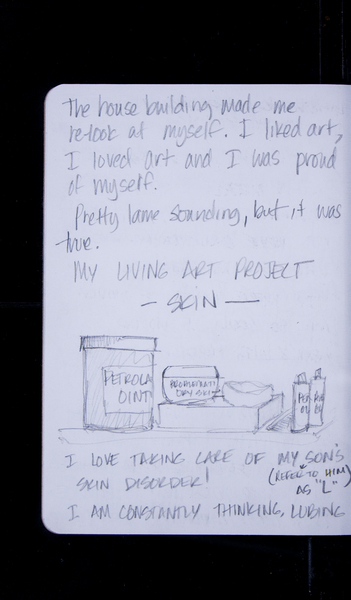 The house building made me
re-look at myself. I liked art,
I loved art and I was proud
of myself.
Pretty lame sounding, but it was
true.
MY LIVING ART PROJECT
— SKIN —
PETROLA
OINT
DRY SKIN
I LOVE TAKING CARE OF MY SON'S
SKIN DISORDER!
(REFER TO HIM)
AS "L"
I AM CONSTANTLY THINKING, LUBING